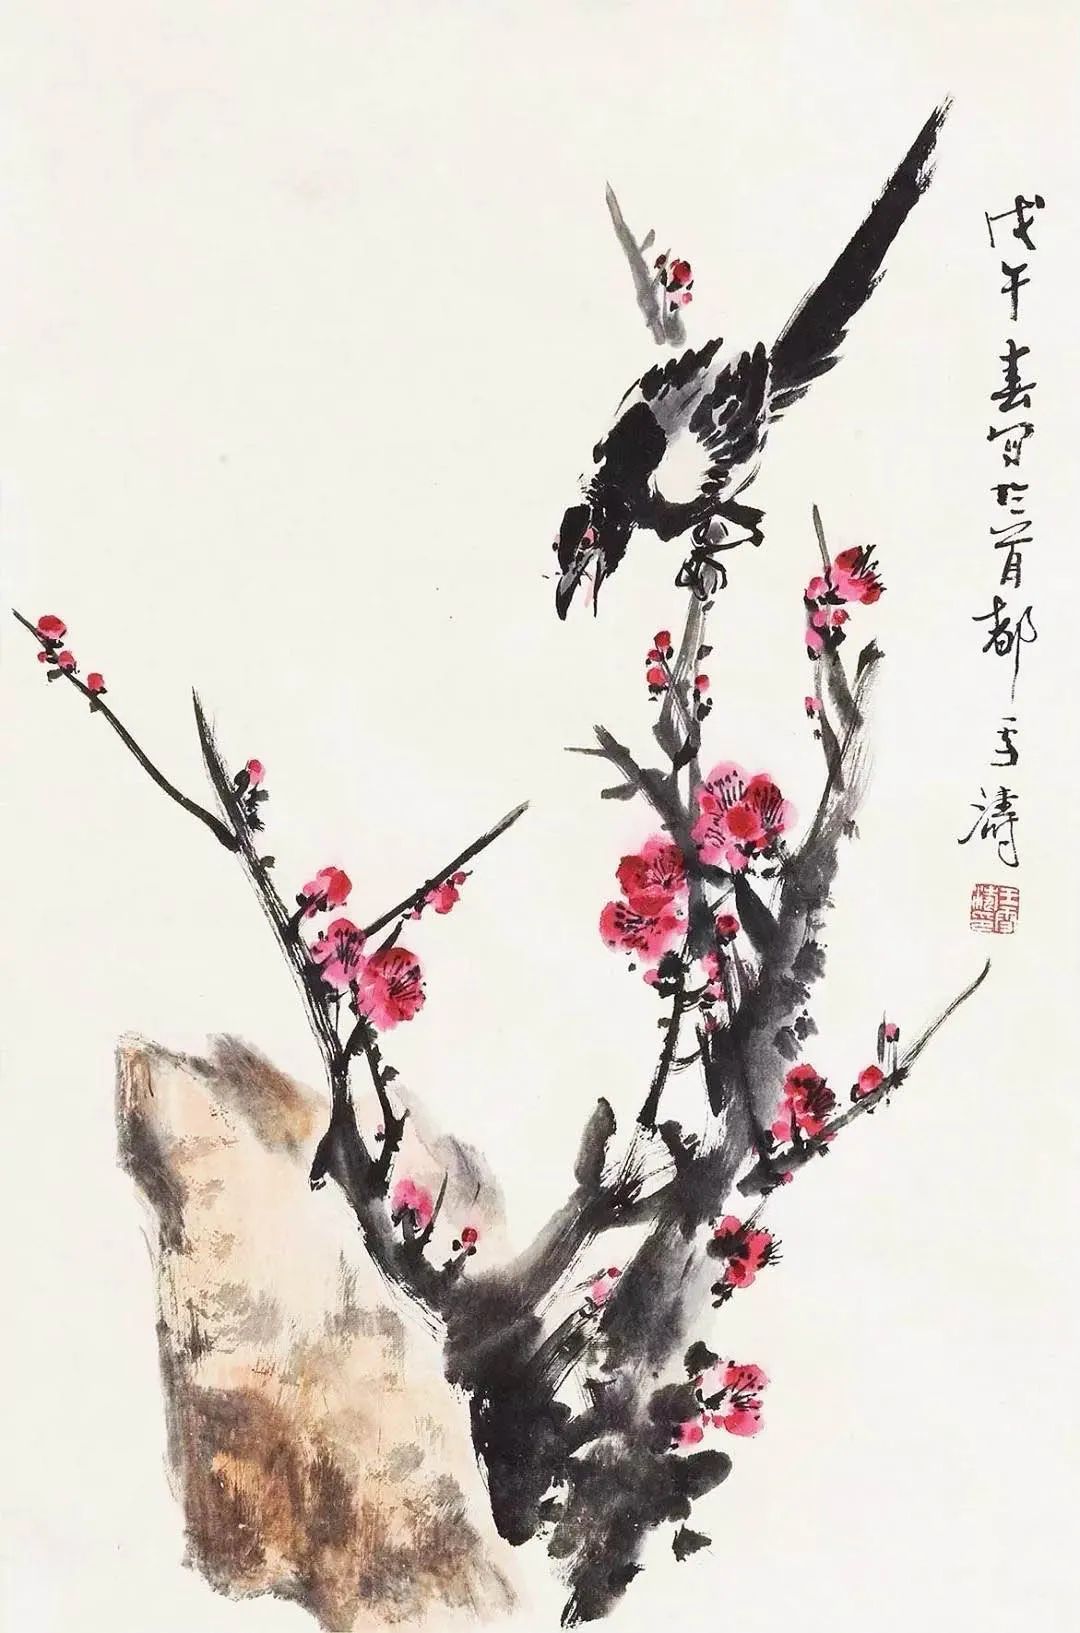 戊午春写於首都雪涛
王雪涛印